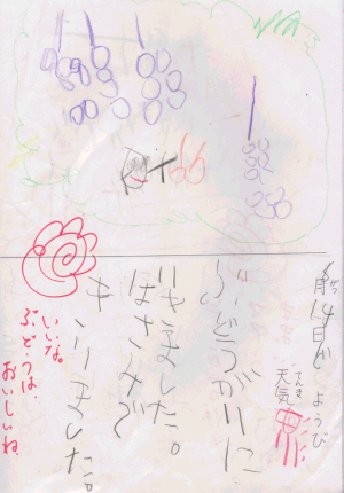 14日どようび
天気
ぶどうがりに
いきました。
はさみで
きりました。
いいな。
ぶどうは、
おいしいね。